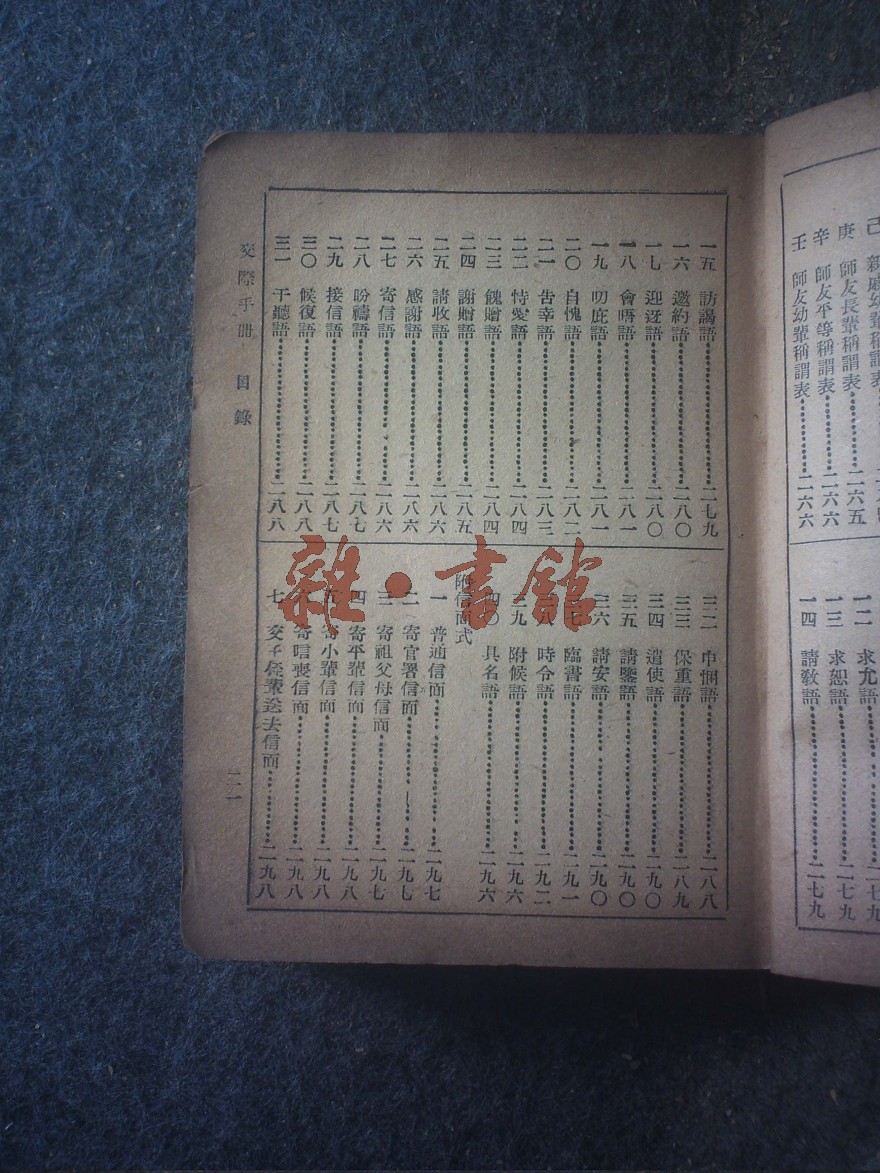 己 親戚幼輩稱謂表
庚 師友長輩稱謂表……二六五
辛 師友平等稱謂表……二六六
壬 師友幼輩稱謂表……二六六
一二 求允語……二七九
一三 求恕語……二七九
一四 請教語……二七九
一五 訪謁語……二七九
一六 邀約語……二八〇
一七 迎迓語……二八〇
一八 會晤語……二八一
一九 叨庇語……二八一
二〇 自愧語……二八二
二一 告幸語……二八三
二二 恃愛語……二八四
二三 餽贈語……二八四
二四 謝贈語……二八五
二五 請收語……二八六
二六 感謝語……二八六
二七 寄信語……二八六
二八 吩禱語……二八七
二九 接信語……二八七
三〇 候復語……二八八
三一 干聽語……二八八
三二 巾悃語……二八八
三三 保重語……二八九
三四 遣使語……二九〇
三五 請鑒語……二九〇
三六 請安語……二九〇
三七 臨書語……二九一
三八 時令語……二九二
三九 附候語……二九六
四〇 具名語……二九六
附信面式
一 普通信面……二九七
二 寄官署信面……二九七
三 寄祖父母信面……二九七
四 寄平輩信面……二九八
五 寄小輩信面……二九八
六 寄唁喪信面……二九八
七 交子侄輩送去信面……二九八
交際手冊 目錄
二一
雜·書館